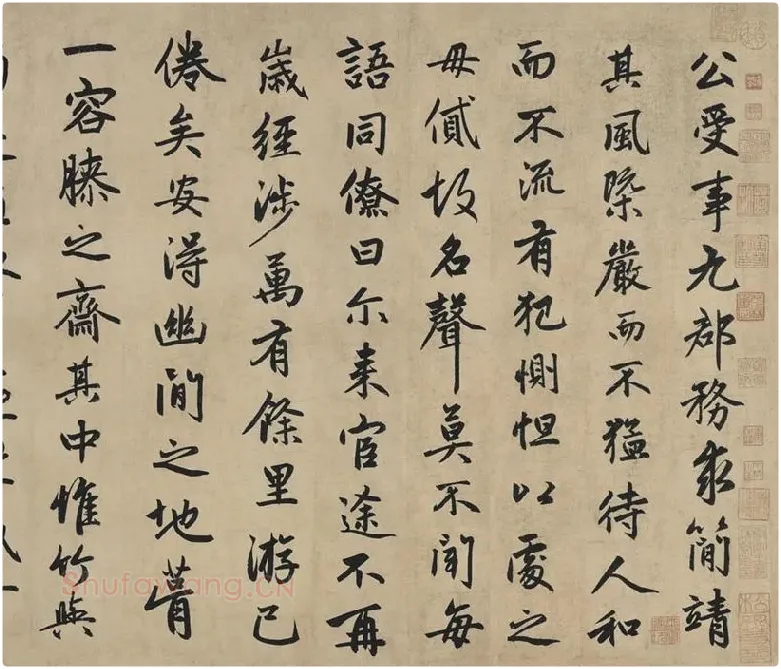 公受事九郡務求簡靖
其風槩嚴而不猛待人和
而不流有犯惻怛以處之
毋貸故名聲莫不聞每
語同僚曰尒来官途不再
歲經涉萬有餘里游已
倦矣安得幽閒之地葺
一容膝之齋其中惟竹與
Shufawang.CN